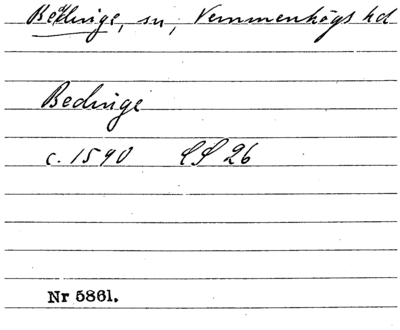 Beddinge, sn, Vemmenhögs hd
Bedinge
c. 1590 LS 26
Nr 5861.